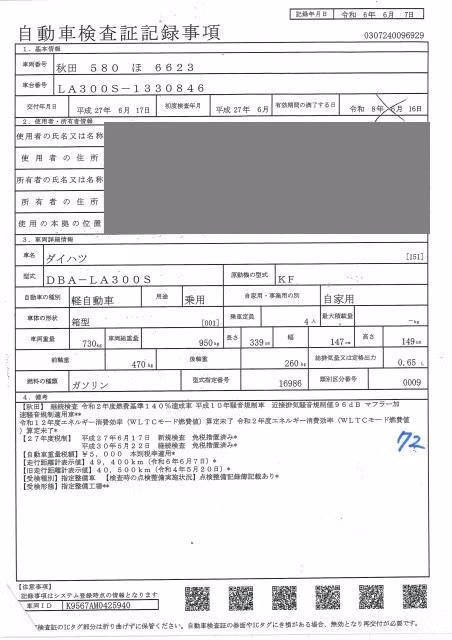 記録年月日 令和 6年 6月 7日
自動車検査証記録事項
0307240096929
1. 基本情報
車両番号 秋田 580 ほ 6623
車台番号 LA300S-1330846
交付年月日 平成 27年 6月 17日 初度検査年月 平成 27年 6月 有効期間の満了する日 令和 8年 6月 16日
2. 使用者・所有者情報
使用者の氏名又は名称
使用者の住所
所有者の氏名又は名称
所有者の住所
使用の本拠の位置
3. 車両詳細情報
車名 ダイハツ [151]
型式 DBA-LA300S 原動機の型式 KF
自動車の種別 軽自動車 用途 乗用 自家用・事業用の別 自家用
車体の形状 箱型 [001] 乗車定員 4人 最大積載量 -kg
車両重量 730kg 車両総重量 950kg 長さ 339cm 幅 147cm 高さ 149cm
前軸重 470kg 後軸重 260kg 総排気量又は定格出力 0.65 L
燃料の種類 ガソリン 型式指定番号 16986 類別区分番号 0009
4. 備考
【秋田】 継続検査 令和2年度燃費基準140%達成車 平成10年騒音規制車 近接排気騒音規制値96dB マフラー加
速騒音規制適用車**
令和12年度エネルギー消費効率(WLTCモード燃費値)算定未了 令和2年度エネルギー消費効率(WLTCモード燃費値
)算定未了*
【27年度税制】 平成27年6月17日 新規検査 免税措置済み*
平成30年5月22日 継続検査 免税措置済み*
【自動車重量税額】¥5,000 本則税率適用*
【走行距離計表示値】49,400km(令和6年6月7日)*
【旧走行距離計表示値】40,500km(令和4年5月20日)*
【受検種別】指定整備車 【検査時の点検整備実施状況】点検整備記録簿記載あり*
【受検形態】指定整備工場**
72
【注意事項】
記載事項はシステム登録時点の情報となります
車両ID K9567AM0425940
*検査証のICタグ部分は折り曲げずに保管ください。自動車検査証の券面やICタグにき損がある場合、無効となり再交付が必要です。